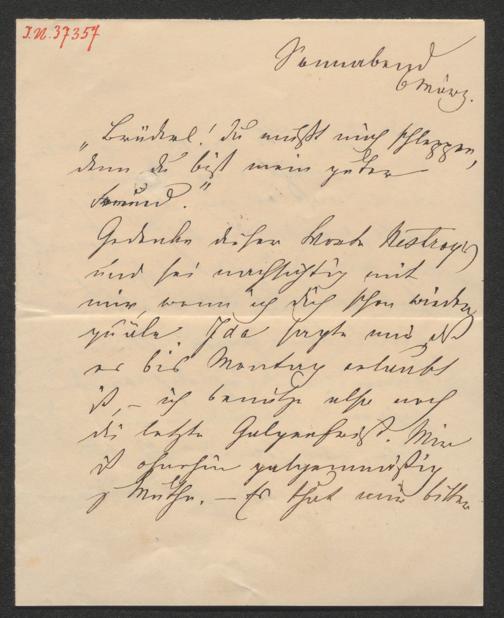 I.N. 37357
Sonnabend
6 März.
„Brüderl! du mußt mich schleppen,
denn du bist mein guter
Freund."
Gedenke dieser Worte Nestroys
und sei nachsichtig mit
mir, wenn ich dich schon wieder
quäle. Ida sagte mir, daß
es bis Montag erlaubt
ist, – ich benütze also noch
die letzte Galgenfrist. Mir
ist ohnehin galgenmäßig
z Muthe. – Es thut mir bitter